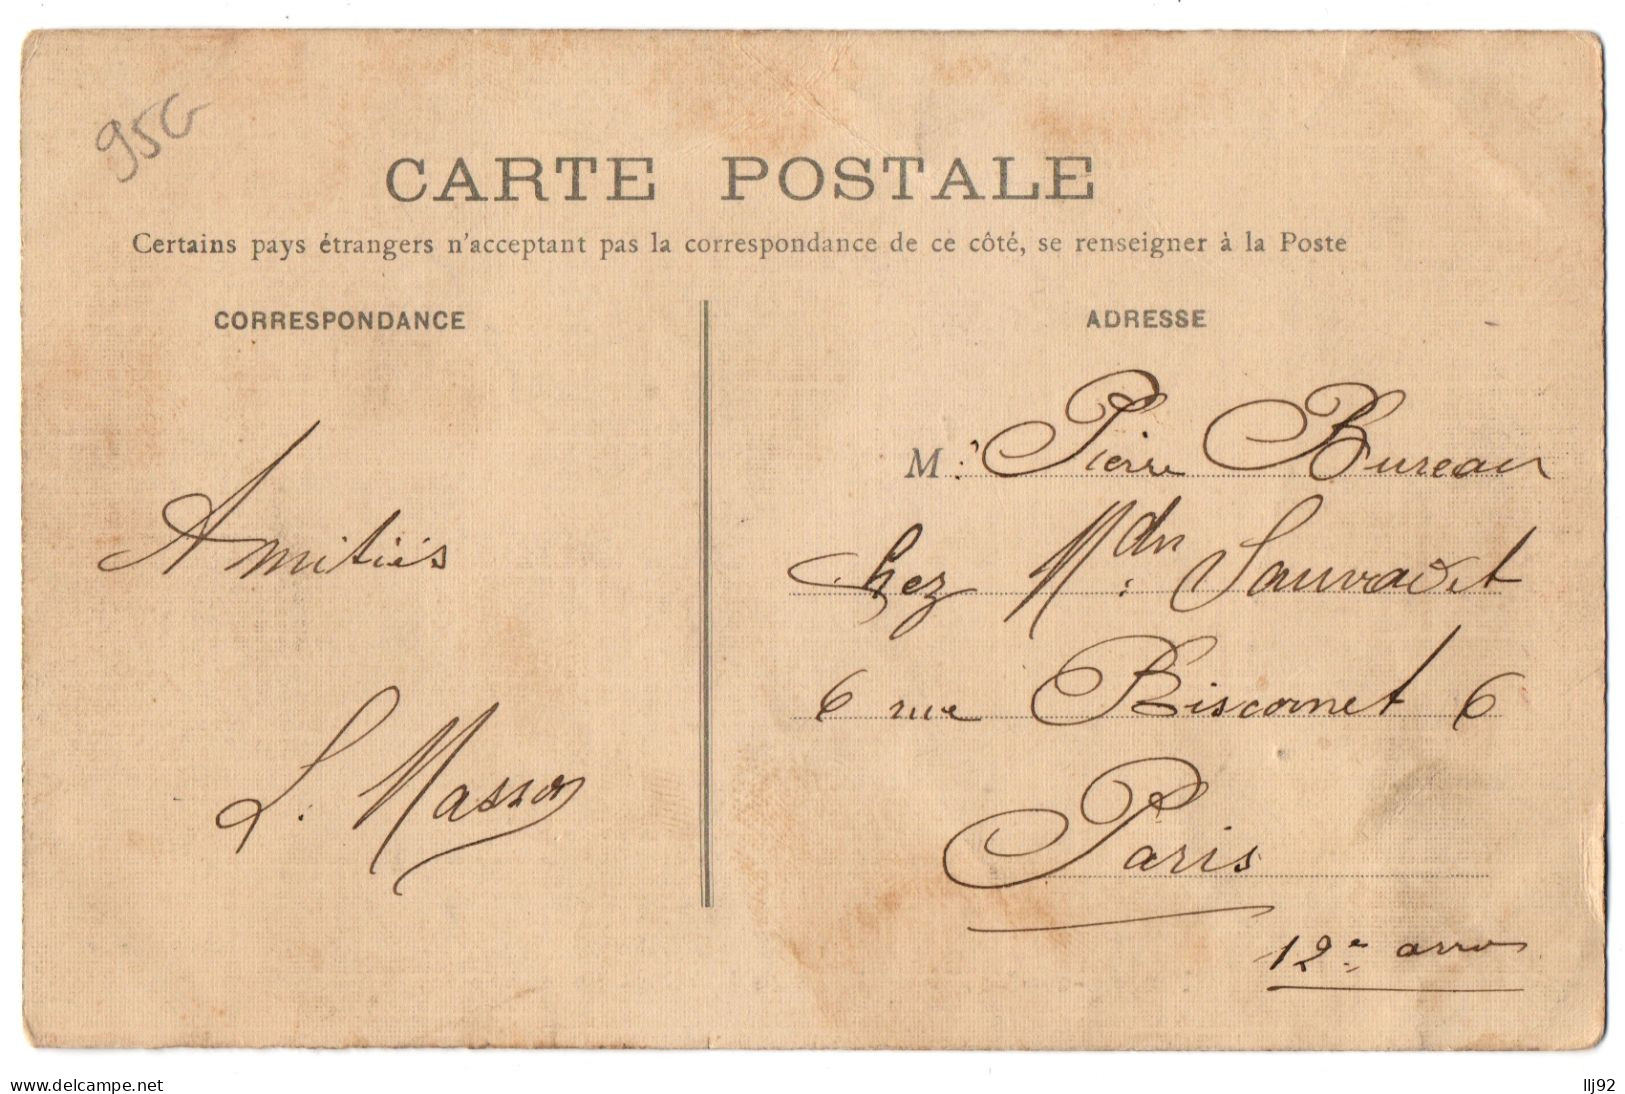 95G
CARTE POSTALE
Certains pays étrangers n'acceptant pas la correspondance de ce côté, se renseigner à la Poste
CORRESPONDANCE
Amitiés
L. Masson
ADRESSE
M. Pierre Bureau
chez
6 rue Biscornet 6
Paris
12e arr
www.delcampe.net
llj92